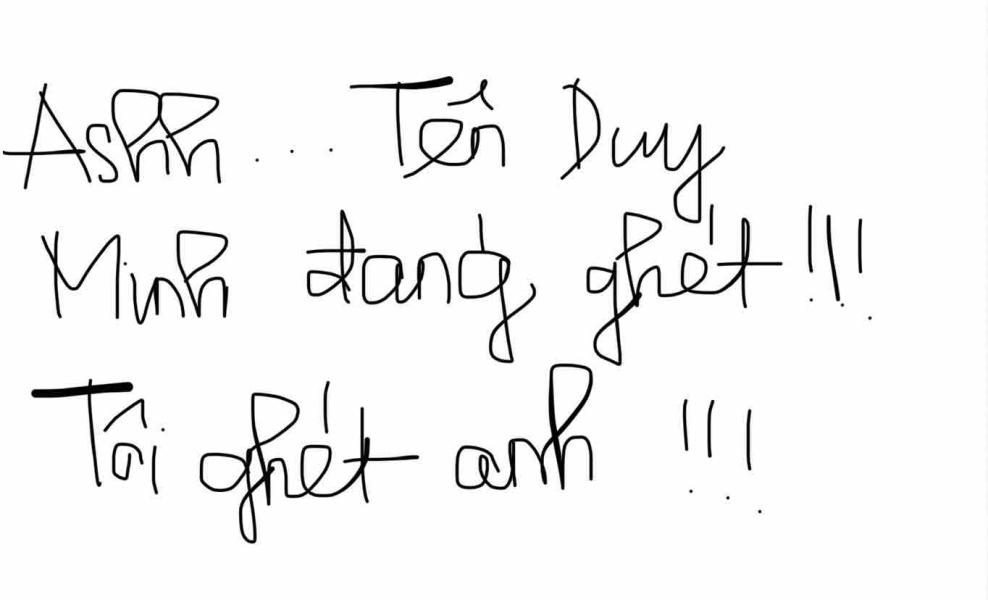 Ashh... Tên Duy
Minh đáng ghét!!!
Tôi ghét anh!!!